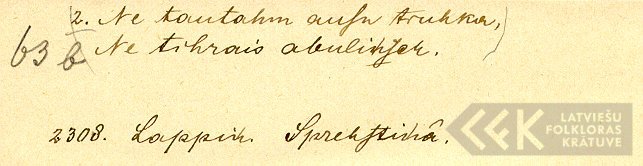 2. Ne tautahm ausu truhka,
63 b Ne tihrais abulinsch.
2308. Lappin. Sprehstinâ.
LATVIEŠU
FOLKLORAS
KRĀTUVE